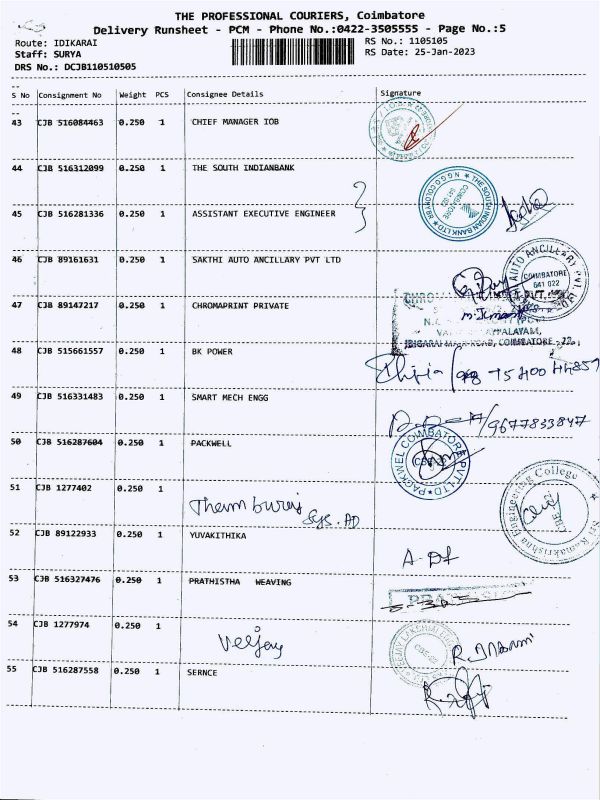 THE PROFESSIONAL COURIERS, Coimbatore
Delivery Runsheet - PCM - Phone No.:0422-3505555 - Page No.:5
Route: IDIKARAI
RS No.: 1105105
Staff: SURYA
RS Date: 25-Jan-2023
DRS No.: DCJB110510505
S No Consignment No Weight PCS Consignee Details Signature
43 CJB 516084463 0.250 1 CHIEF MANAGER IOB
44 CJB 516312099 0.250 1 THE SOUTH INDIANBANK
THE SOUTH INDIAN BANK LTD
COIMBATORE
45 CJB 516281336 0.250 1 ASSISTANT EXECUTIVE ENGINEER
46 CJB 89161631 0.250 1 SAKTHI AUTO ANCILLARY PVT LTD
AUTO ANCILLARY PVT. LTD
COIMBATORE
641 022
47 CJB 89147217 0.250 1 CHROMAPRINT PRIVATE
48 CJB 515661557 0.250 1 BK POWER
49 CJB 516331483 0.250 1 SMART MECH ENGG
/9677833847
50 CJB 516287604 0.250 1 PACKWELL
COIMBATORE
51 CJB 1277402 0.250 1
Sys. AD
Sri Ramakrishna Engineering College
CBE
52 CJB 89122933 0.250 1 YUVAKITHIKA
53 CJB 516327476 0.250 1 PRATHISTHA WEAVING
54 CJB 1277974 0.250 1
Veejay
55 CJB 516287558 0.250 1 SERNCE